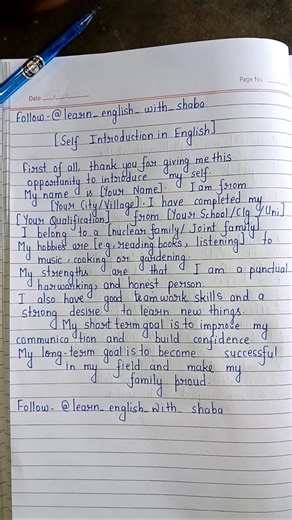 Page No:
Date
Follow-@learn_english_with_shaba
[Self Introduction in English]
First of all, thank you for giving me this
opportunity to introduce my self.
My name is [Your Name]. I am from
[Your City/Village]. I have completed my
[Your Qualification] from [Your School/Clg/Uni]
I belong to a [nuclear family/Joint family]
My hobbies are [e.g, reading books, listening] to
music, cooking or gardening.
My strengths are that I am a punctual
harwarking and honest person.
I also have good teamwork skills and a
strong desire to learn new things.
My short term goal is to improve my
communication and build confidence.
My long-term goal is to become successful
in my field and make my
family proud.
Follow-@learn_english_with_shaba